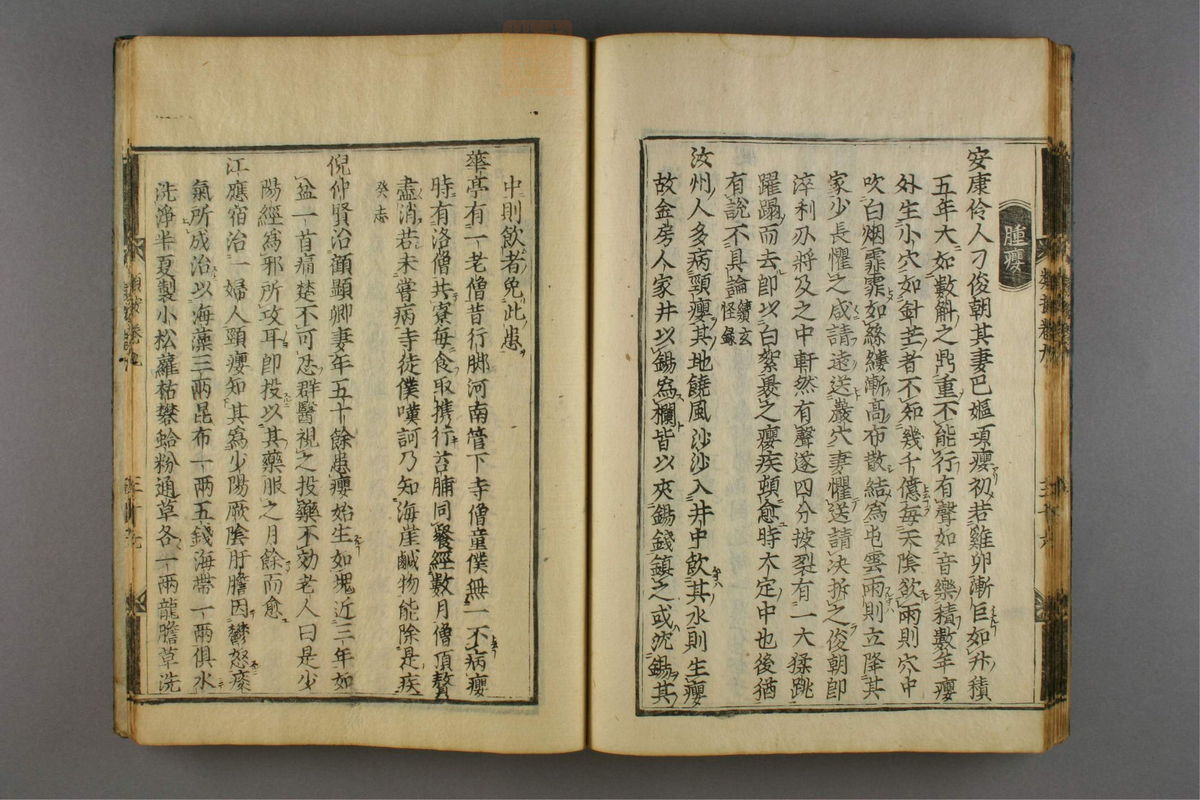 腫癭
安康伶人刁俊朝其妻巴嫗項癭初若雞卵漸巨如升積
五年大如數斛之鼎重不能行有聲如音樂積數年癭
外生小穴如針芒者不知幾千億每天陰欲雨則穴中
吹白烟霏霏如絲縷漸高布散結為屯雲雨則立降其
家少長懼之咸請遠送巖穴妻懼送請決拆之俊朝即
淬利刃將及之中軒然有聲遂四分披裂有一大猱跳
躍蹋而去即以白絮裹之癭疾頓愈時不定中也後猶
有說不具論續玄怪錄
汝州人多病頸癭其地饒風沙沙入井中飲其水則生癭
故金房人家井以錫為欄皆以夾錫錢鎮之或沈錫其
中則飲者免此患
華亭有一老僧昔行脚河南管下寺僧童僕無一不病癭
時有洛僧共寮每食取攜行苔脯同餐經數月僧項贅
盡消若未嘗病寺徒僕嘆訶乃知海崖鹹物能除是疾
癸志
倪仲賢治顧顯卿妻年五十餘患癭始生如塊近三年如
盆一首痛楚不可忍群醫視之投藥不効老人曰是少
陽經為邪所攻耳即投以其藥服之月餘而愈
江應宿治一婦人頸癭知其為少陽厥陰肝膽因鬱怒痰
氣所成治以海藻三兩昆布一兩五錢海帶一兩俱水
洗淨半夏製小松蘿枯礬蛤粉通草各一兩龍膽草洗